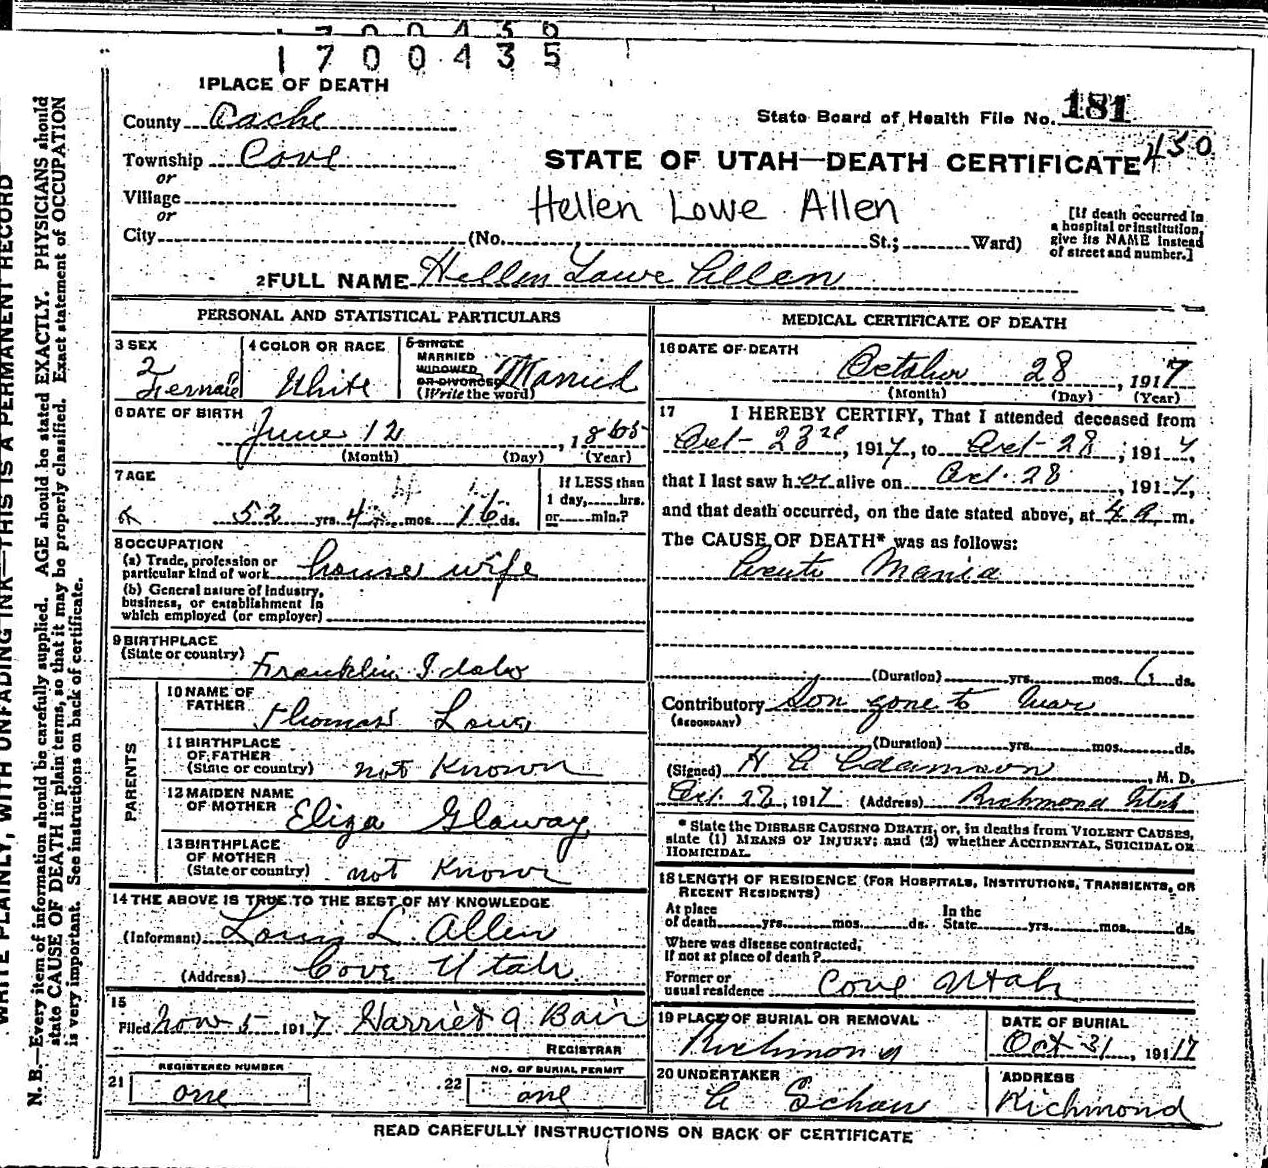 1700436
1700435
1 PLACE OF DEATH
County Cache
State Board of Health File No. 181
Township Cove
STATE OF UTAH—DEATH CERTIFICATE 450
or
Village
Hellen Lowe Allen
or
City (No. St.; Ward)
[If death occurred in a hospital or institution, give its NAME instead of street and number.]
2 FULL NAME Hellen Lowe Allen
PERSONAL AND STATISTICAL PARTICULARS
3 SEX
2
Female
4 COLOR OR RACE
White
5 SINGLE
MARRIED
WIDOWED
OR DIVORCED
(Write the word)
Married
6 DATE OF BIRTH
June 12, 1865
(Month) (Day) (Year)
7 AGE
52 yrs. 4 mos. 16 ds.
If LESS than
1 day, hrs.
or min.?
8 OCCUPATION
(a) Trade, profession or
particular kind of work house wife
(b) General nature of industry,
business, or establishment in
which employed (or employer)
9 BIRTHPLACE
(State or country) Franklin Idaho
PARENTS
10 NAME OF
FATHER Thomas Lowe
11 BIRTHPLACE
OF FATHER
(State or country) not Known
12 MAIDEN NAME
OF MOTHER Eliza Glaway
13 BIRTHPLACE
OF MOTHER
(State or country) not Known
14 THE ABOVE IS TRUE TO THE BEST OF MY KNOWLEDGE
(Informant) Louis L. Allen
(Address) Cove Utah
15
Filed Nov 5 1917 Harriet A Bair
REGISTRAR
REGISTERED NUMBER
21 one
NO. OF BURIAL PERMIT
22 one
MEDICAL CERTIFICATE OF DEATH
16 DATE OF DEATH
October 28, 1917
(Month) (Day) (Year)
17 I HEREBY CERTIFY, That I attended deceased from
Oct- 23rd, 1917, to Oct- 28, 1917,
that I last saw her alive on Oct. 28, 1917,
and that death occurred, on the date stated above, at 4 a m.
The CAUSE OF DEATH* was as follows:
Acute Mania
(Duration) yrs. mos. 6 ds.
Contributory Son gone to war
(SECONDARY)
(Duration) yrs. mos. ds.
(Signed) H C Adamson, M. D.
Oct. 22, 1917 (Address) Richmond Utah
* State the DISEASE CAUSING DEATH, or, in deaths from VIOLENT CAUSES,
state (1) MEANS OF INJURY; and (2) whether ACCIDENTAL, SUICIDAL OR
HOMICIDAL.
18 LENGTH OF RESIDENCE (FOR HOSPITALS, INSTITUTIONS, TRANSIENTS, OR
RECENT RESIDENTS)
At place
of death yrs. mos. ds.
In the
State yrs. mos. ds.
Where was disease contracted,
If not at place of death?
Former or
usual residence Cove Utah
19 PLACE OF BURIAL OR REMOVAL
Richmond
DATE OF BURIAL
Oct 31, 1917
20 UNDERTAKER
ADDRESS
Richmond
READ CAREFULLY INSTRUCTIONS ON BACK OF CERTIFICATE
WRITE PLAINLY, WITH UNFADING INK—THIS IS A PERMANENT RECORD
N. B.—Every item of information should be carefully supplied. AGE should be stated EXACTLY. PHYSICIANS should
state CAUSE OF DEATH in plain terms, so that it may be properly classified. Exact statement of OCCUPATION
is very important. See instructions on back of certificate.